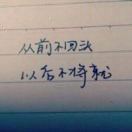 从前不回头
以后不将就